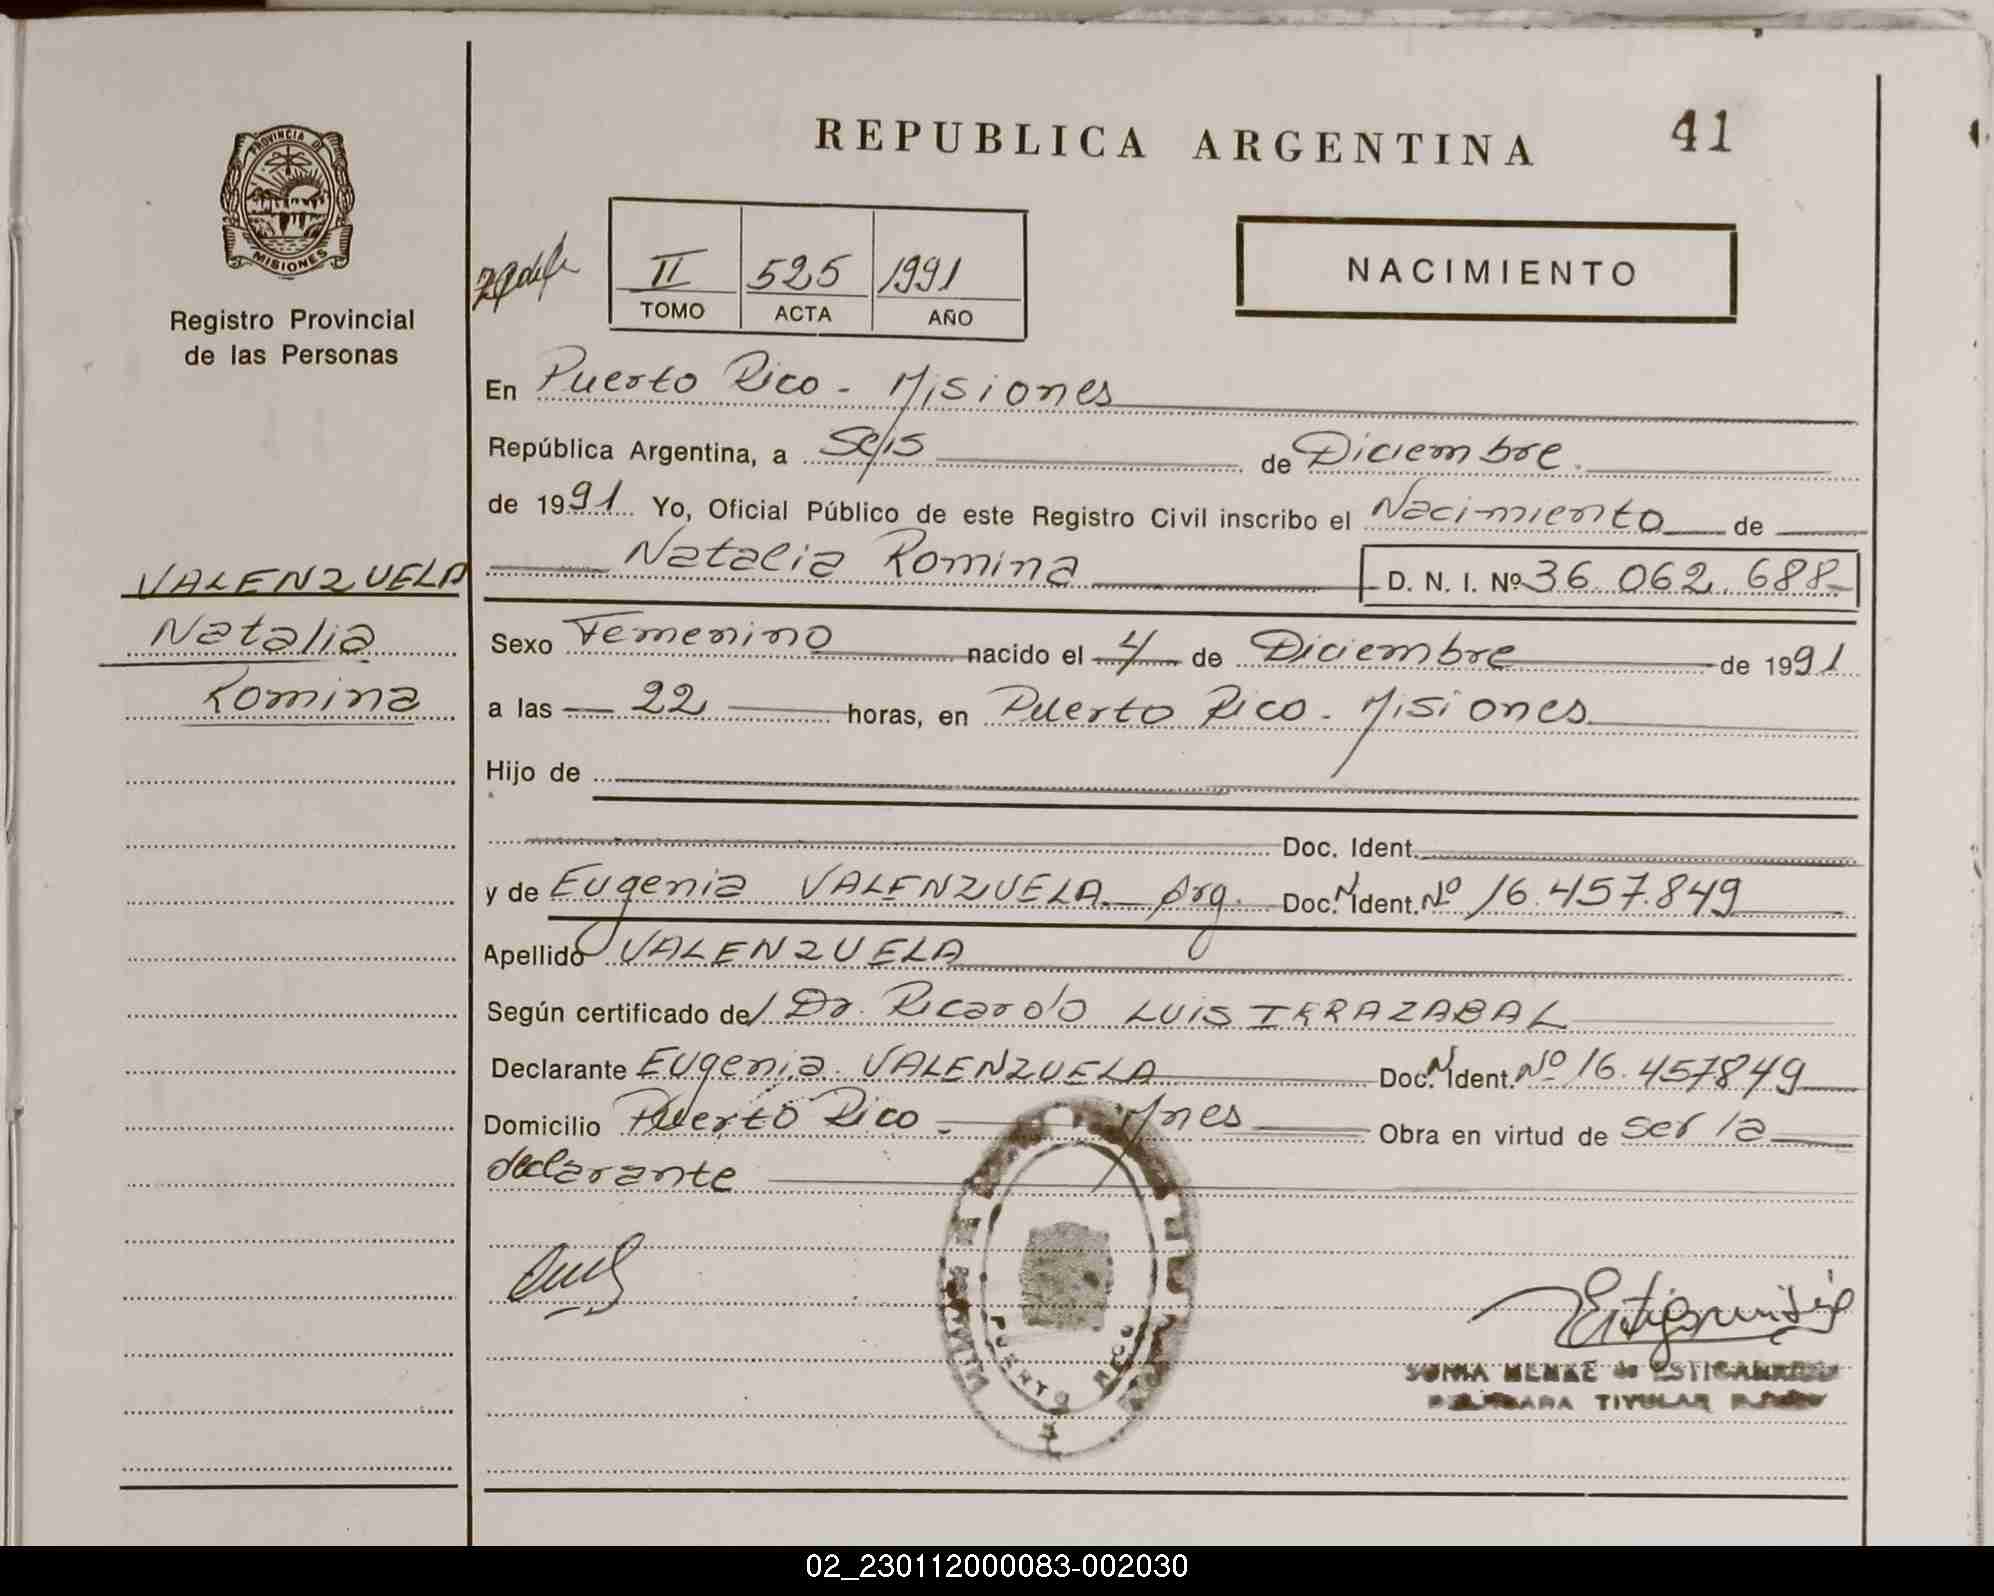 REPUBLICA ARGENTINA
41
PROVINCIA DE
MISIONES
Registro Provincial
de las Personas
II 525 1991
TOMO ACTA AÑO
NACIMIENTO
En Puerto Rico - Misiones
República Argentina, a Seis de Diciembre
de 1991 Yo, Oficial Público de este Registro Civil inscribo el Nacimiento de
Natalia Romina D. N. I. Nº 36.062.688
VALENZUELA
Natalia
Romina
Sexo Femenino nacido el 4 de Diciembre de 1991
a las 22 horas, en Puerto Rico - Misiones
Hijo de
Doc. Ident.
y de Eugenia VALENZUELA Arg. Doc. N Ident. Nº 16.457.849
Apellido VALENZUELA
Según certificado de/ Dr. Ricardo LUIS IRRAZABAL
Declarante Eugenia VALENZUELA Doc. N Ident. Nº 16.457849
Domicilio Puerto Rico - Mnes Obra en virtud de ser la
declarante
PUERTO RICO
SONIA MENKE de
TITULAR
02_230112000083-002030